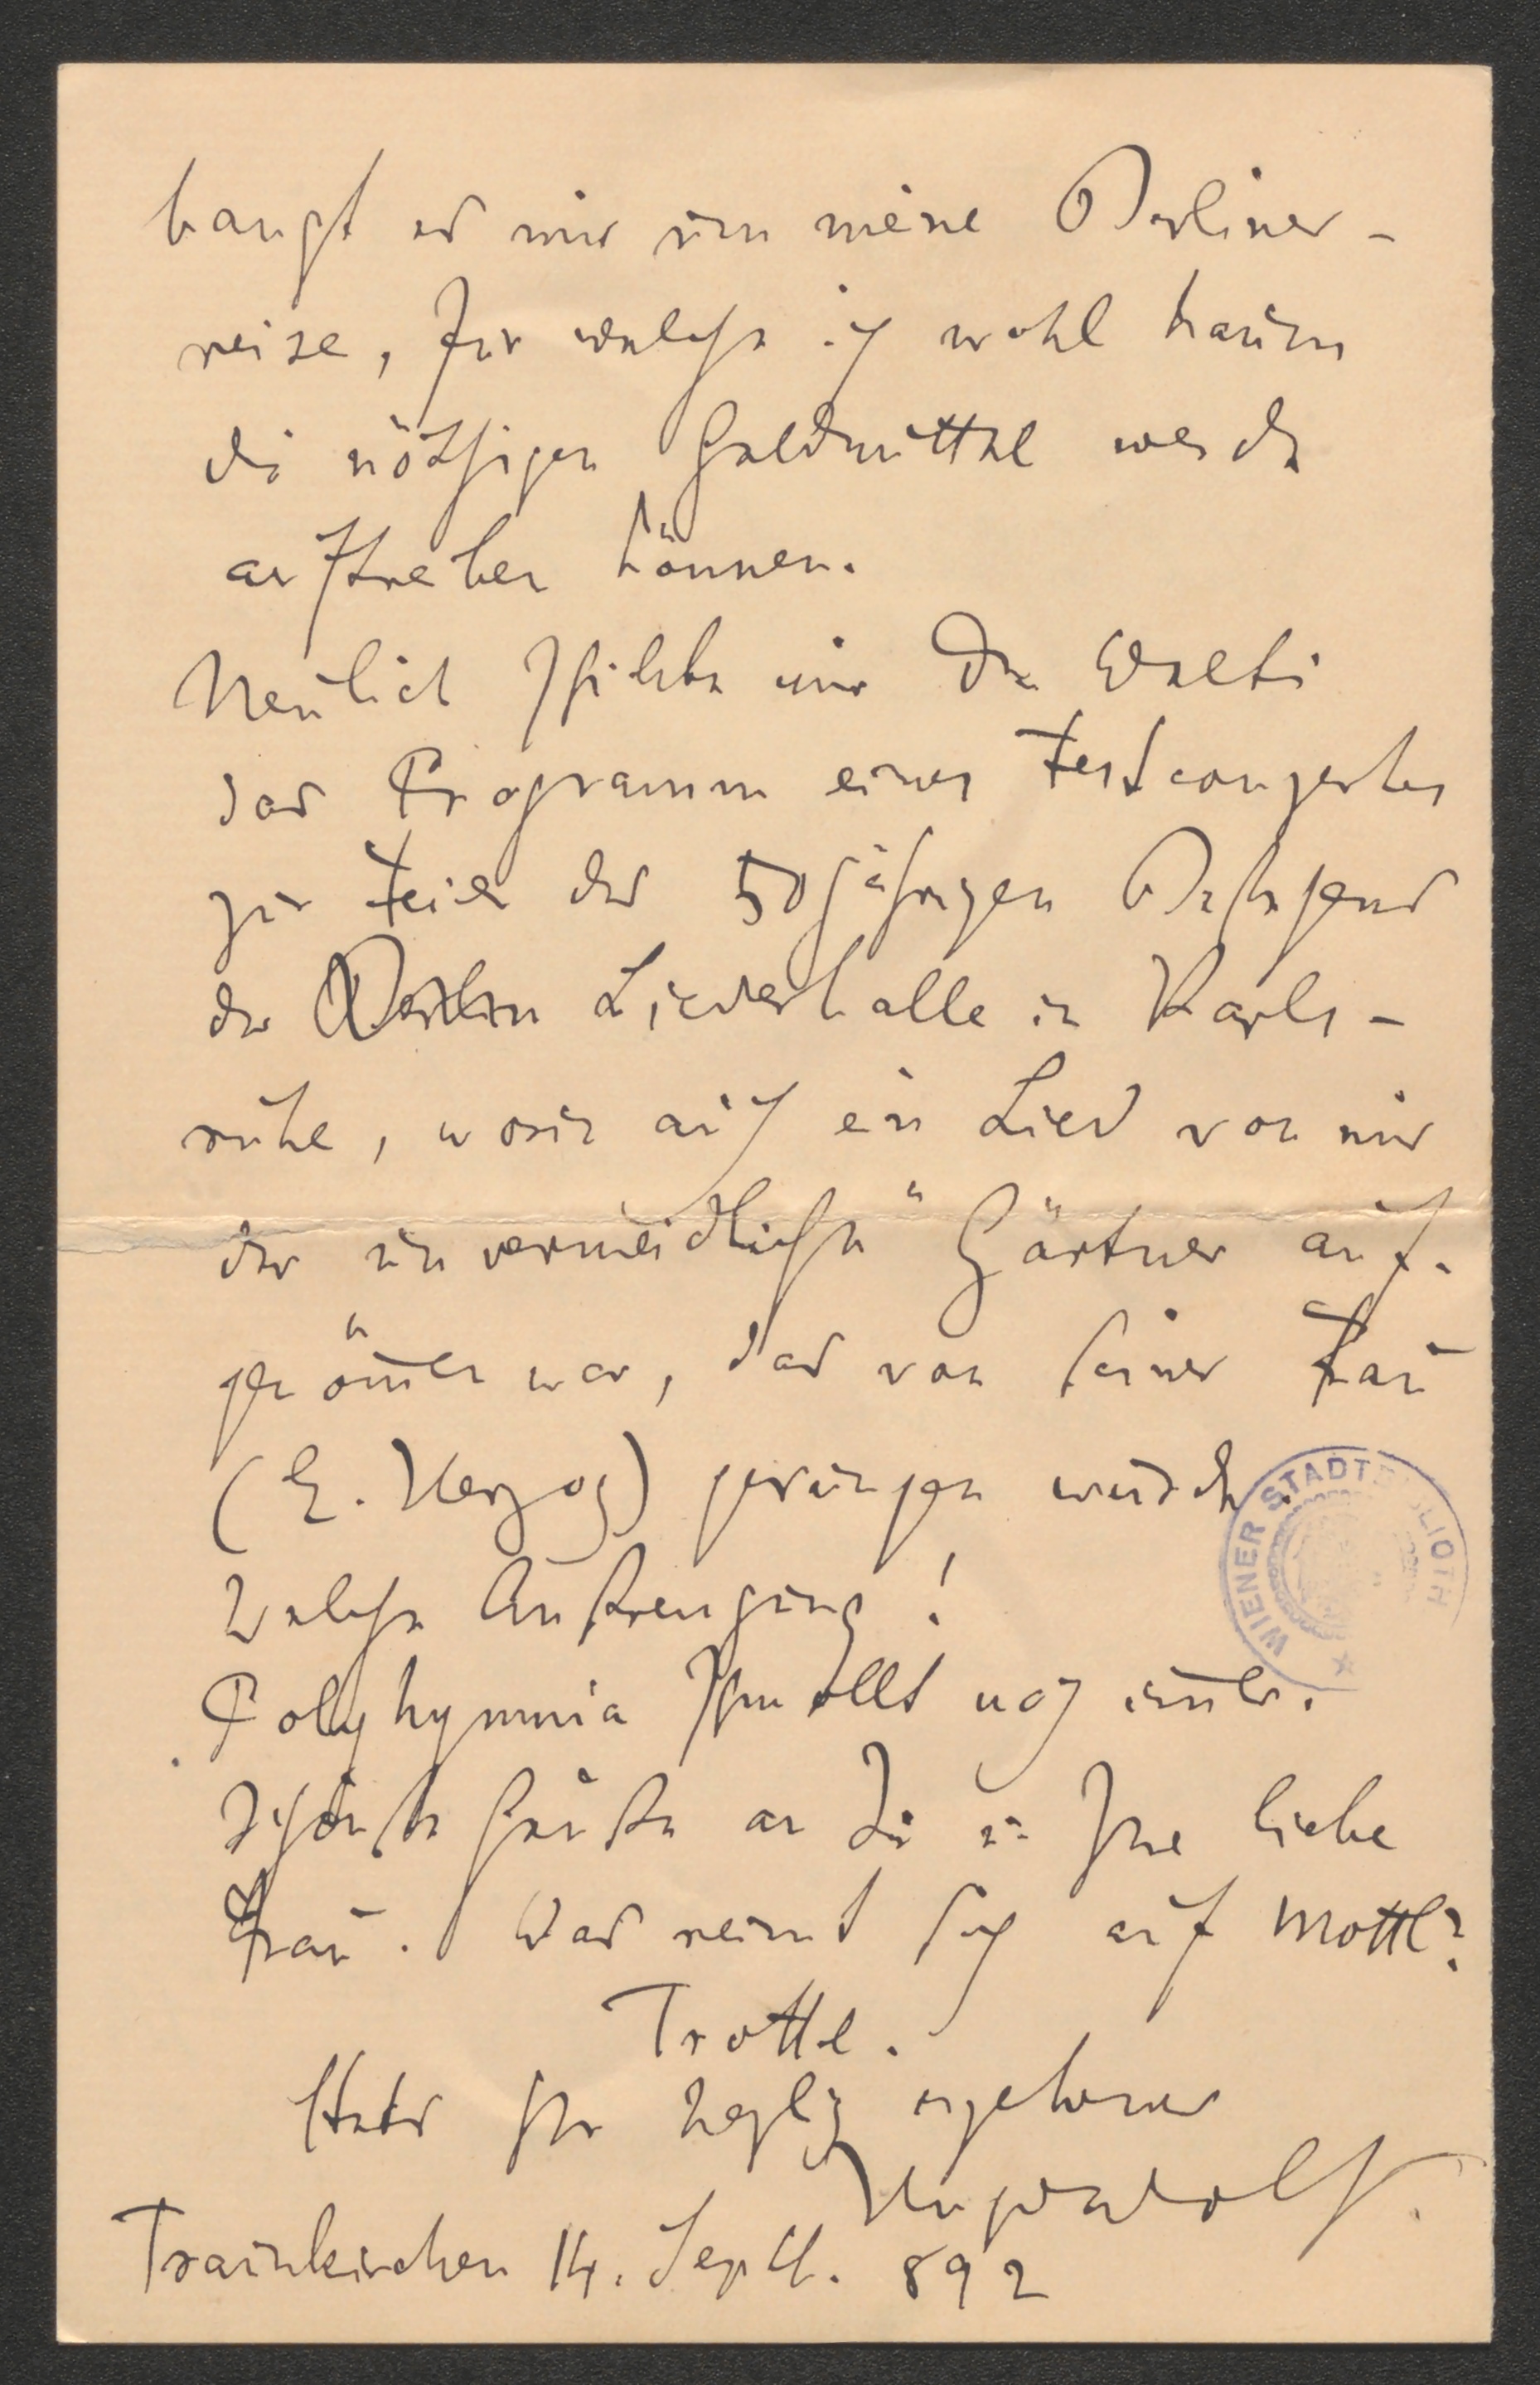 bangt es mir um meine Berliner-
reise, für welche ich wohl kaum
die nöthigen Geldmittel werde
auftreiben können.
Neulich schickte mir Dr. Welti
das Programm eines Festconzertes
zur Feier des 50jährigen Bestehens
der Liederhalle in Karls-
ruhe, worin auch ein Lied von mir
der unvermeidliche "Gärtner auf-
genom̄en war, das von seiner Frau
(E. Herzog) gesungen wurde.
Welche Anstrengung!
Polyhymnia schmollt noch im̄er.
Schönste Grüße an Sie u. Ihre liebe
Frau. Was reimt sich auf Mottl?
Trottl.
Stets Ihr herzlich ergebener
Hugo Wolf.
Traunkirchen 14. Sept. 892
WIENER STADTBIBLIOTH